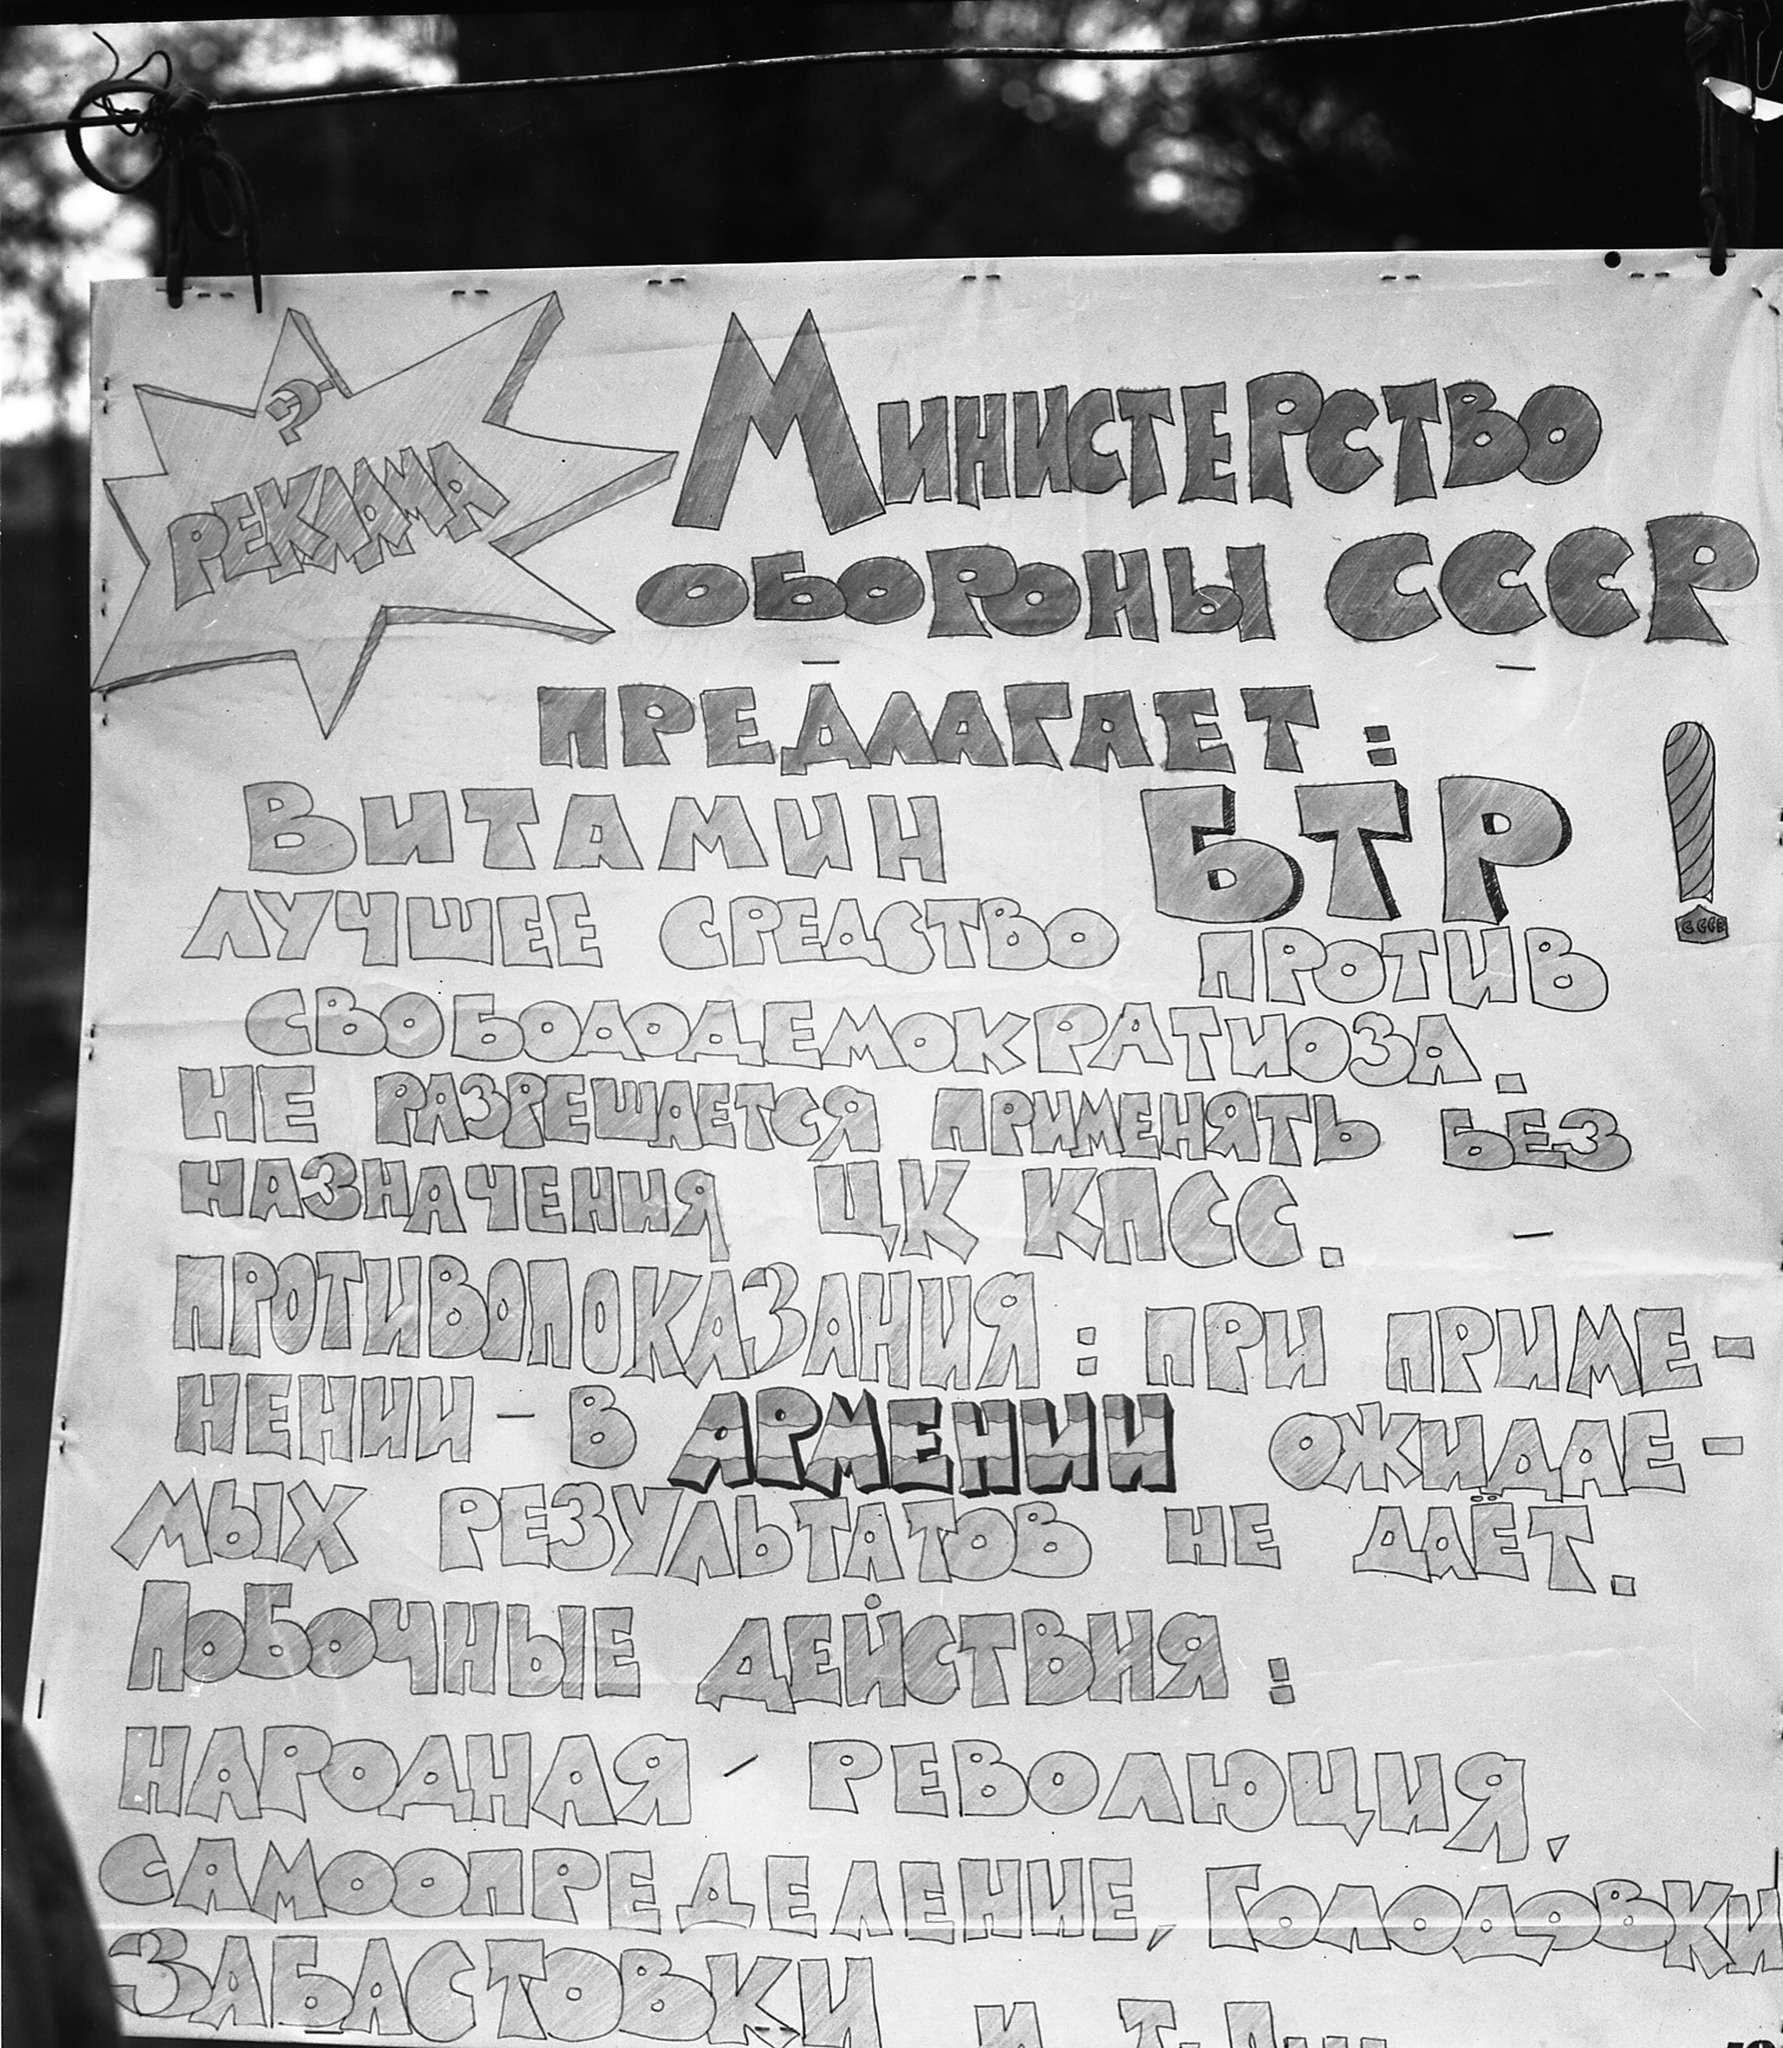 РЕКЛАМА
МИНИСТЕРСТВО
ОБОРОНЫ СССР
ПРЕДЛАГАЕТ:
ВИТАМИН БТР!
СССР
ЛУЧШЕЕ СРЕДСТВО ПРОТИВ
СВОБОДОДЕМОКРАТИОЗА.
НЕ РАЗРЕШАЕТСЯ ПРИМЕНЯТЬ БЕЗ
НАЗНАЧЕНИЯ ЦК КПСС.
ПРОТИВОПОКАЗАНИЯ: ПРИ ПРИМЕ-
НЕНИИ - В АРМЕНИИ ОЖИДАЕ-
МЫХ РЕЗУЛЬТАТОВ НЕ ДАЁТ.
ПОБОЧНЫЕ ДЕЙСТВИЯ:
НАРОДНАЯ - РЕВОЛЮЦИЯ,
САМООПРЕДЕЛЕНИЕ, ГОЛОДОВКИ
ЗАБАСТОВКИ И Т.